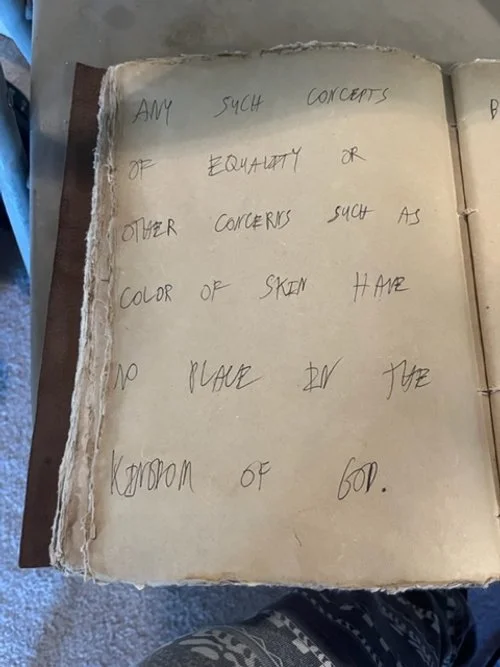 ANY SUCH CONCEPTS
OF EQUALITY OR
OTHER CONCERNS SUCH AS
COLOR OF SKIN HAVE
NO PLACE IN THE
KINGDOM OF GOD.
B